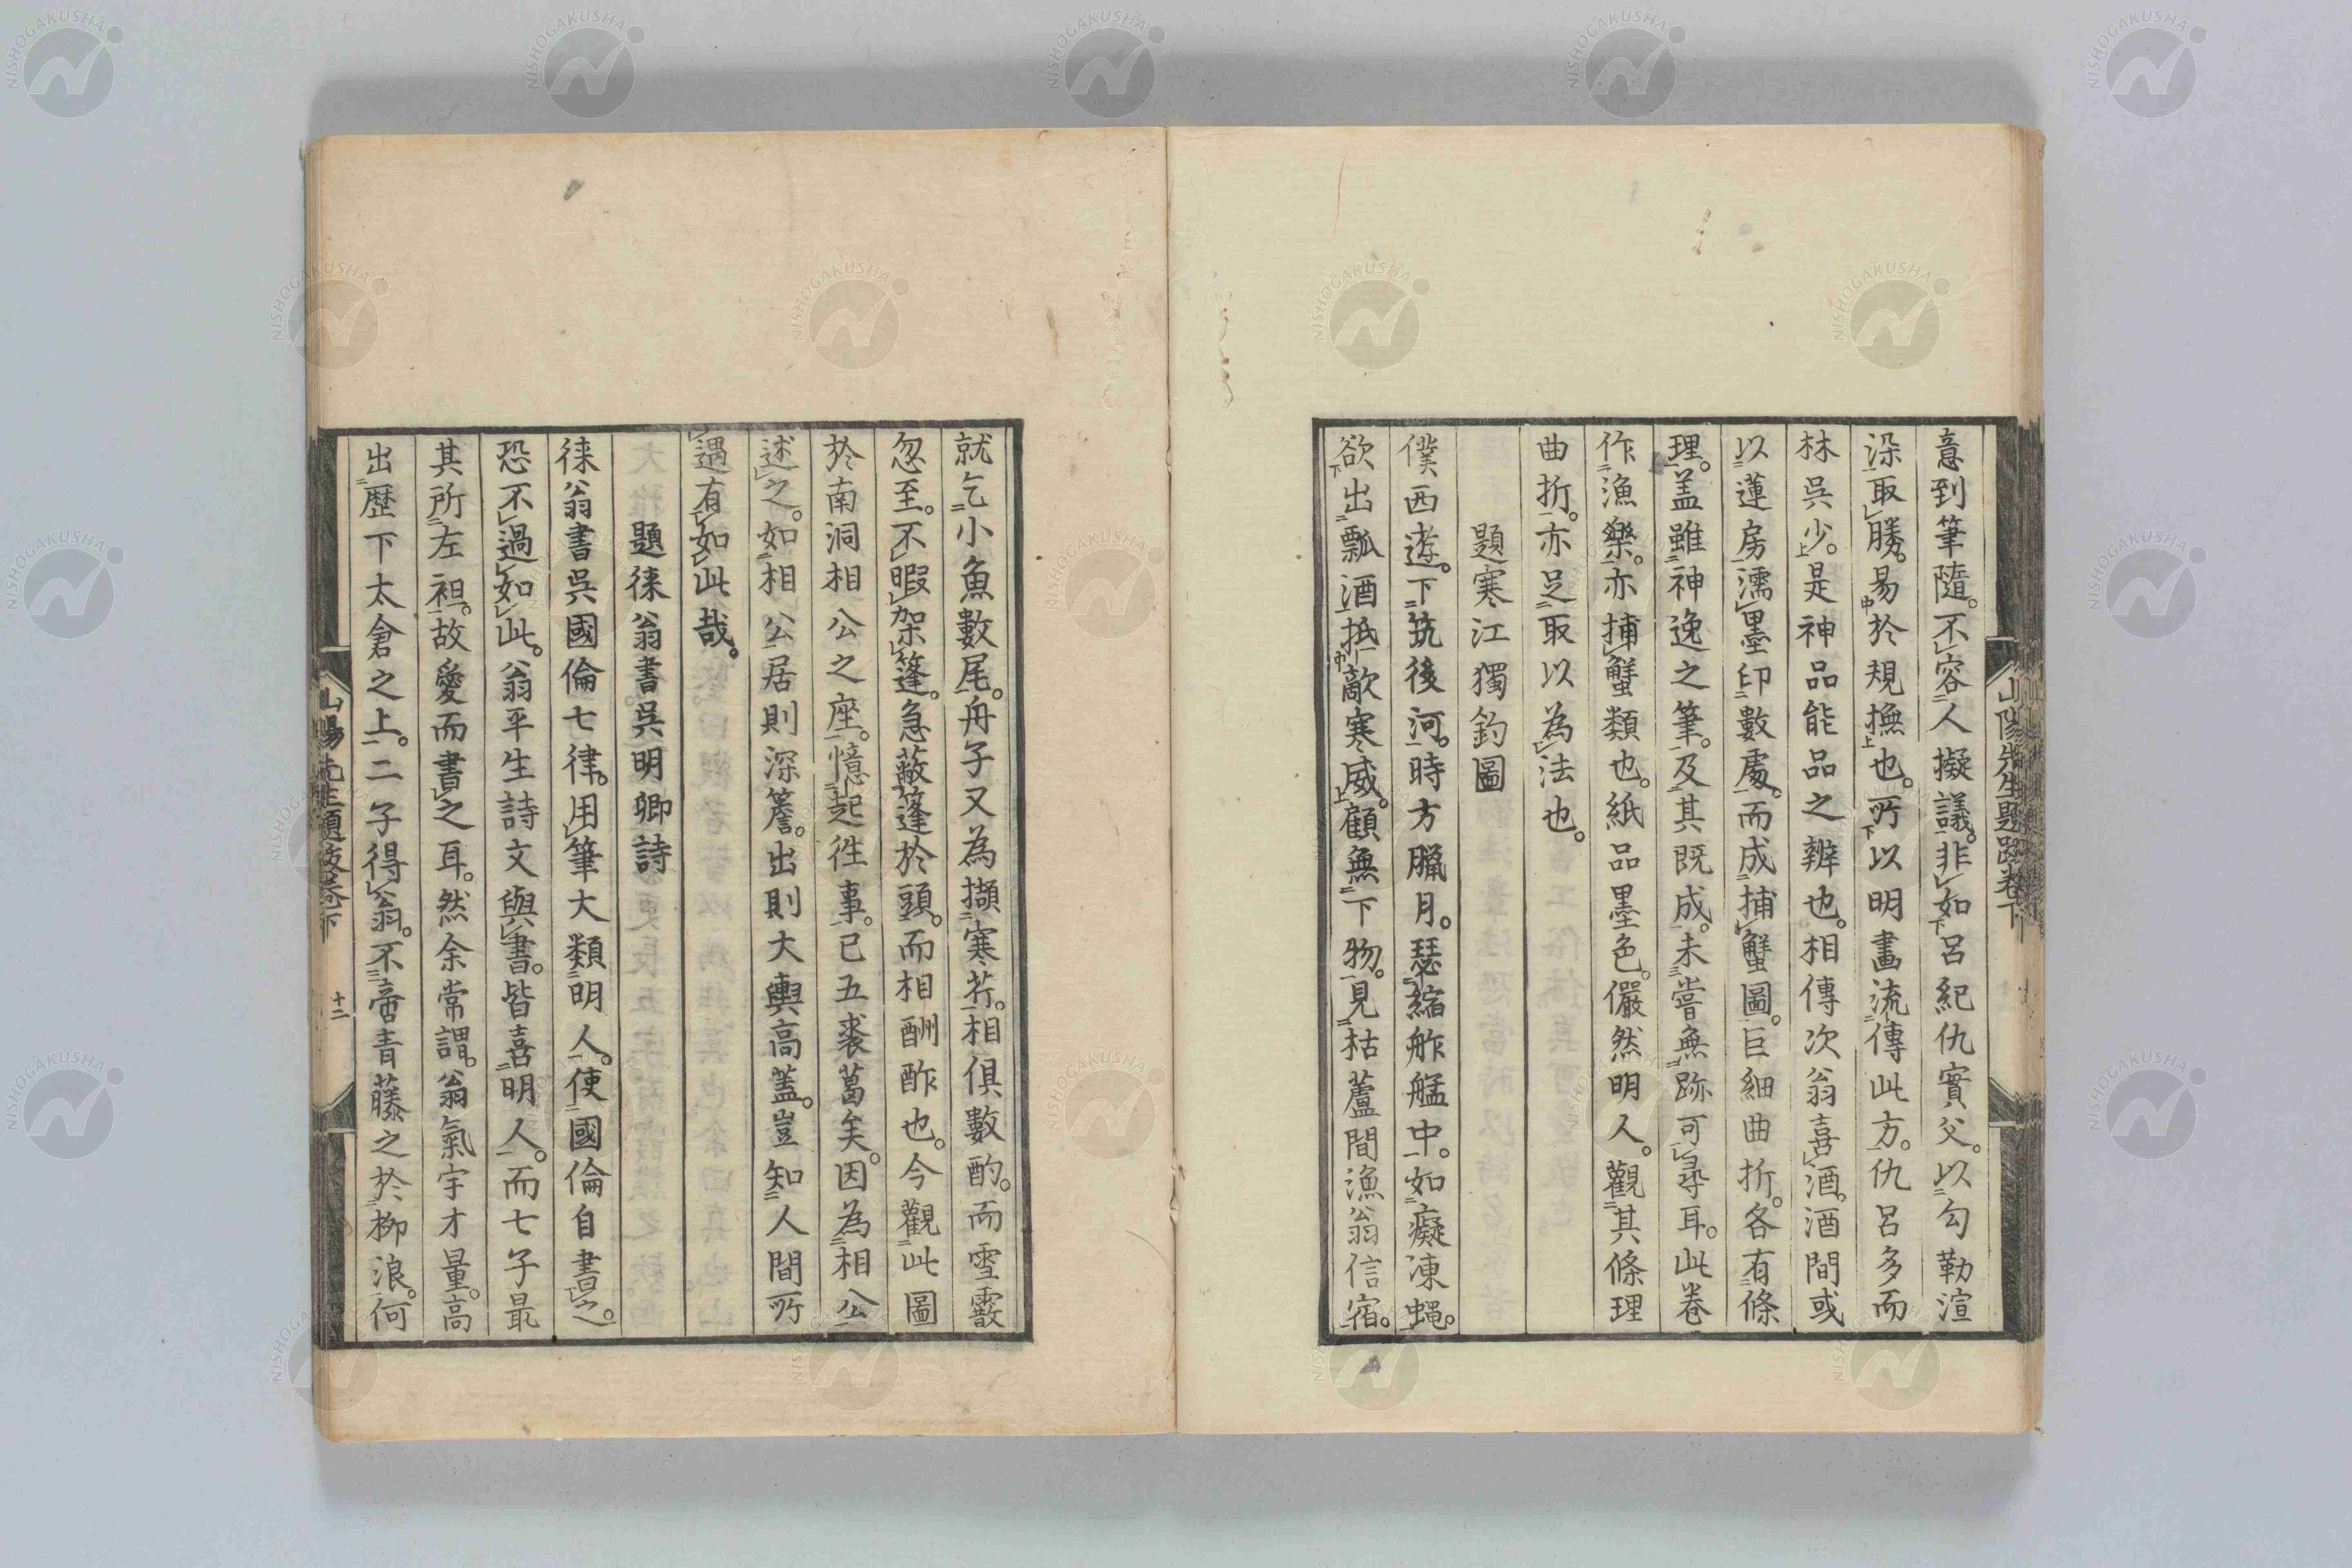 山陽先生題跋卷下
意到筆隨。不容人擬議。非如呂紀仇實父。以勾勒渲
染取勝。易於規撫也。所以明畫流傳此方。仇呂多而
林吳少。是神品能品之辨也。相傳次翁喜酒。酒間或
以蓮房濡墨印數處。而成捕蟹圖。巨細曲折。各有條
理。盖雖神逸之筆。及其既成。未嘗無跡可尋耳。此卷
作漁樂。亦捕蟹類也。紙品墨色。儼然明人。觀其條理
曲折。亦足取以為法也。
題寒江獨釣圖
僕西遊。下筑後河。時方臘月。瑟縮舴艋中。如癡凍蝿。
欲出瓢酒抵敵寒威。顧無下物。見枯蘆間漁翁信宿。
就乞小魚數尾。舟子又為擷寒荇。相俱數酌。而雪霰
忽至。不暇架篷。急蔽篷於頭。而相酬酢也。今觀此圖
於南洞相公之座。憶起徃事。已五裘葛矣。因為相公
述之。如相公居則深簷。出則大輿高蓋。豈知人間所
遇有如此哉。
題徠翁書吳明卿詩
徠翁書吳國倫七律。用筆大類明人。使國倫自書之。
恐不過如此。翁平生詩文與書。皆喜明人。而七子最
其所左袒。故愛而書之耳。然余常謂。翁氣宇才量。高
出歷下太倉之上。二子得翁。不啻青藤之於柳浪。何
山陽先生題跋卷下
十二
NISHOGAKUSHA